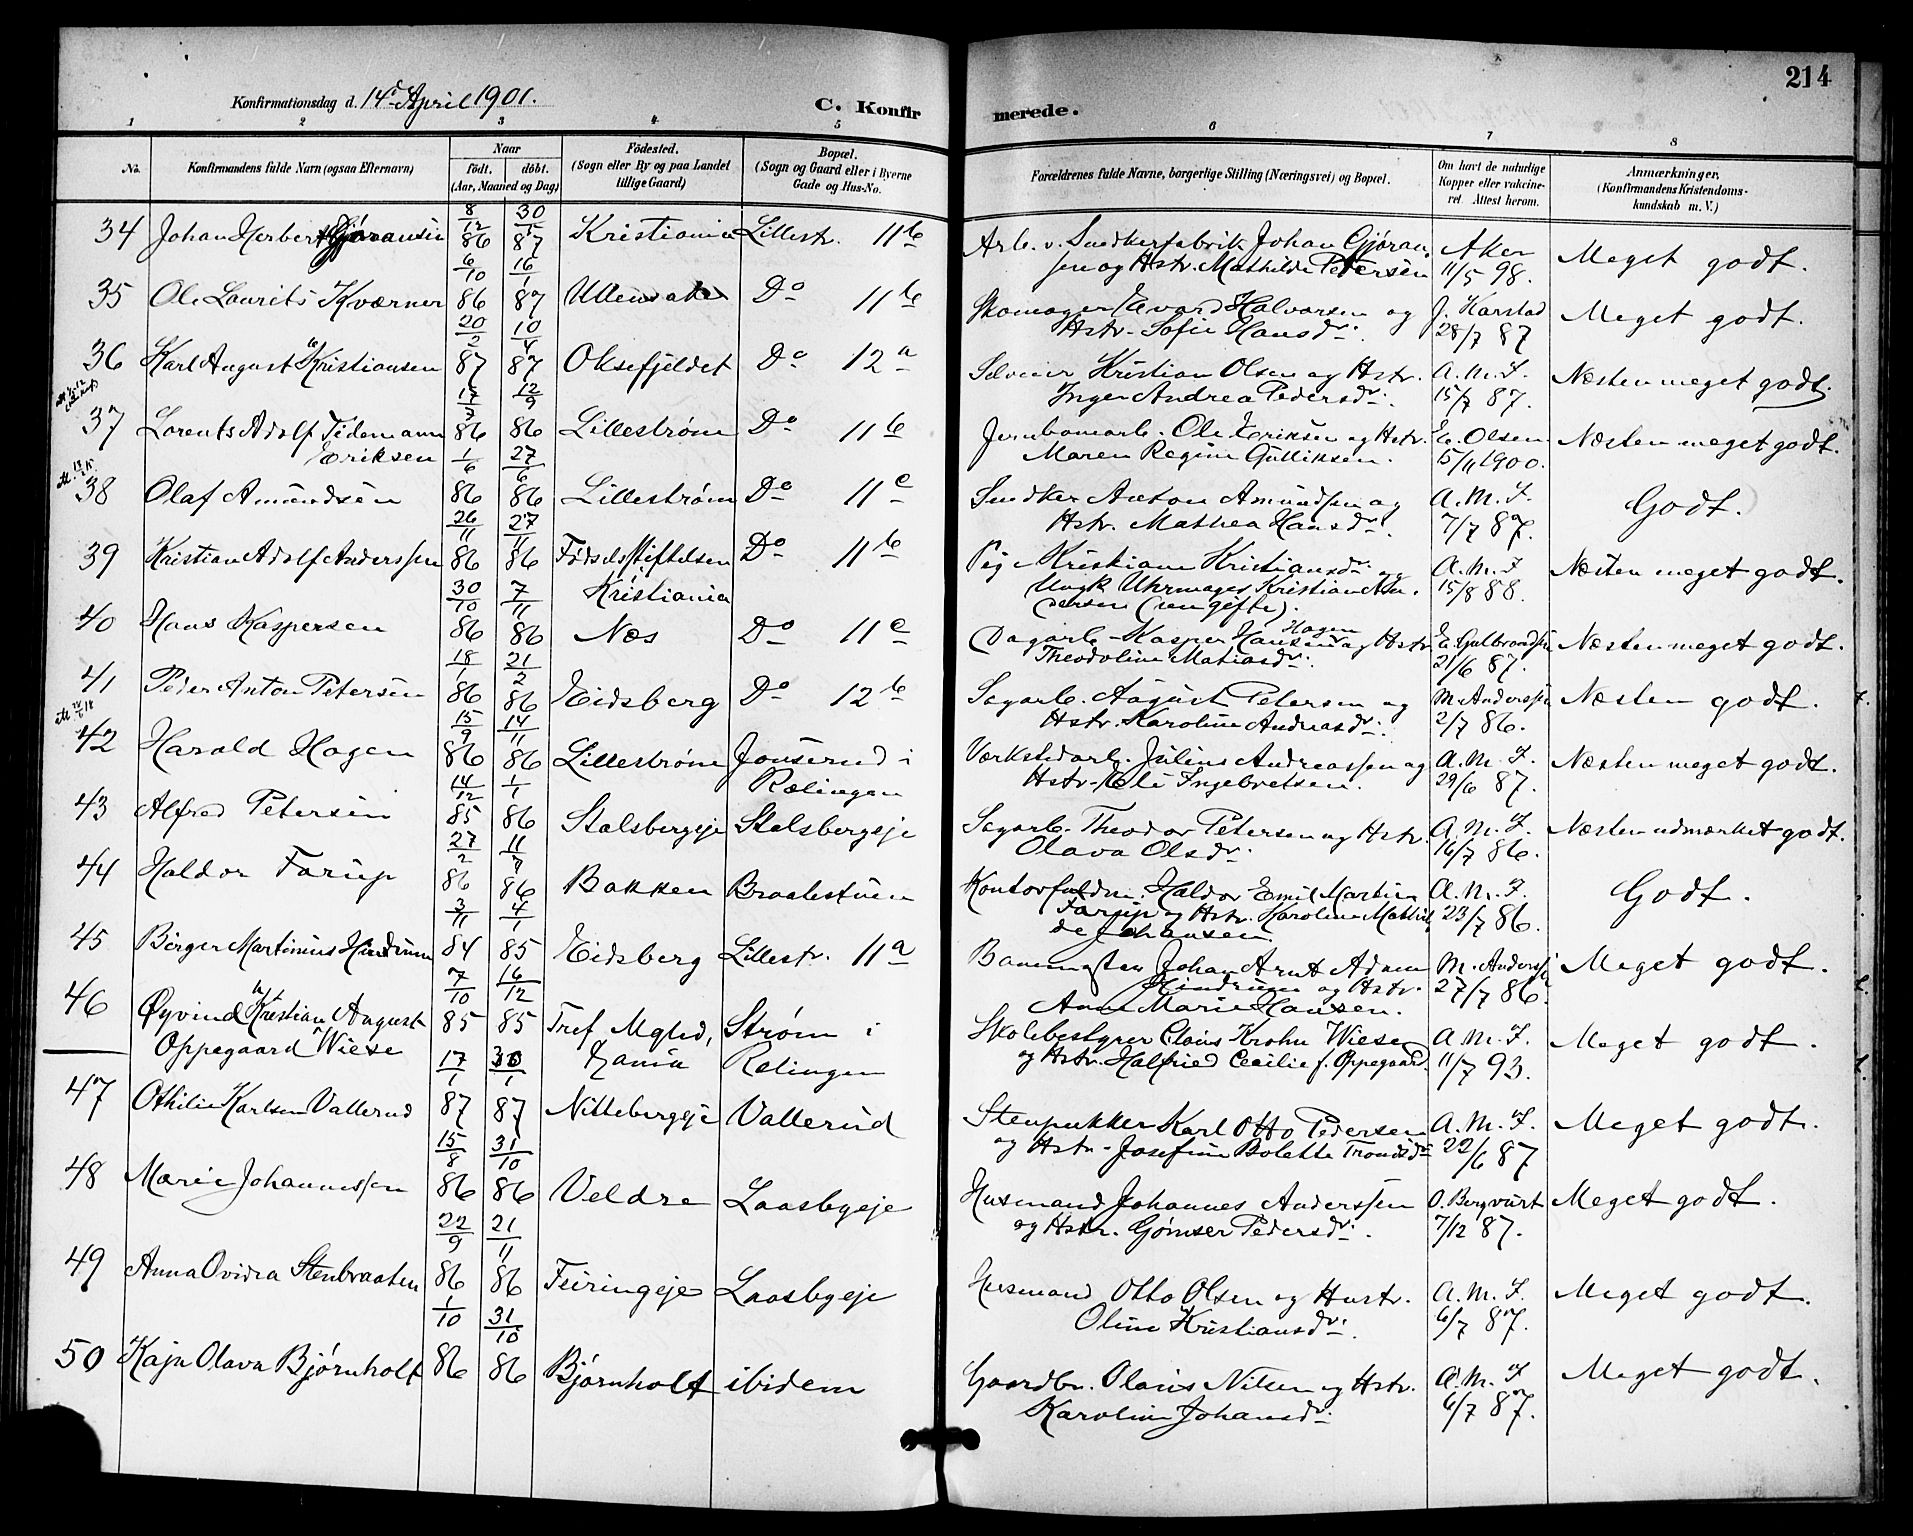 214
Konfirmationsdag d. 14de April 1901.
C. Konfirmerede.
1 2 3 4 5 6 7 8
No.
Konfirmandens fulde Navn (ogsaa Efternavn)
Naar
födt. döbt.
(Aar, Maaned og Dag)
Födested.
(Sogn eller By og paa Landet
tillige Gaard)
Bopæl.
(Sogn og Gaard eller i Byerne
Gade og Hus-No.
Forældrenes fulde Navne, borgerlige Stilling (Næringsvei) og Bopæl.
Om havt de naturlige
Kopper eller vakcine-
ret. Attest herom.
Anmærkninger.
(Konfirmandens Kristendoms-
kundskab m. V.)
34 Johan Herbert Gjøransen 8/12 86 30/1 87 Kristiania Lillestr. 11b Arb. v. Snedkerfabrik Johan Gjøran- Aker Meget godt.
sen og Hstr. Mathilde Petersen 11/5 98.
35 Ole Laurits Kværner 6/10 86 16/1 87 Ullensaker Do 11b Skomager Edvard Halvorsen og J. Harstad Meget godt.
Hstr. Sofie Hansdr. 28/7 87
36 Karl August Kristiansen 20/2 87 10/4 87 Oksefjeldet Do 12a Kristian Olsen og Hstr. A. M. F. Næsten meget godt.
Inger Andrea Pedersdr. 15/7 87.
37 Lorents Adolf Tidemann 17/7 86 12/9 86 Lillestrøm Do 11b Jernbanearb. Ole Eriksen og Hstr. E. Olsen Næsten meget godt.
Eriksen Maren Regine Gulliksen. 15/11 1900.
38 Olaf Amundsen 1/6 86 27/6 86 Lillestrøm Do 11c Snedker Anton Amundsen og A. M. F. Godt.
Hstr. Mathea Hansdr. 7/7 87.
39 Kristian Adolf Anderssen 26/11 86 27/11 86 Fødselsstiftelsen Do 11b Pig. Kristiane Kristiansdr. og A. M. F. Næsten meget godt.
Kristiania Ungk. Uhrmager Kristian An- 15/8 88.
dersen (nu gifte).
40 Hans Kaspersen 30/10 86 7/11 86 Næs Do 11c Dagarb. Kasper Hansen Hagen og Hstr. E. Gulbrandsen Næsten meget godt.
Theodoline Matiasdr. 21/6 87.
41 Peder Anton Petersen 18/1 86 21/2 86 Eidsberg Do 12b Sagarb. August Petersen og M. Anderssen Næsten godt.
Hstr. Karoline Andreasdr. 2/7 86.
42 Harald Hagen 15/9 86 14/11 86 Lillestrøm Jonserud i Værkstedarb. Julius Andreassen og A. M. F. Næsten meget godt.
Rælingen Hstr. Eli Ingebretsen. 29/6 87.
43 Alfred Petersen 14/12 85 1/1 86 Stalsbergeje Stalsbergeje Sagarb. Theodor Petersen og Hstr. A. M. F. Næsten udmærket godt.
Olava Olsdr. 16/7 86.
44 Haldor Farup 27/2 86 11/7 86 Bakken Braatestuen Kontorfuldm. Haldor Emil Martin A. M. F. Godt.
Farup og Hstr. Karoline Mathil- 23/7 86.
de Johansen.
45 Birger Martinius Hindrum 3/11 84 4/1 85 Eidsberg Lillestr. 11a Banemester Johan Arnt Adam M. Anderssen Meget godt.
Hindrum og Hstr. 27/7 86.
Anne Marie Hansen.
46 Øyvind Kristian August 7/10 85 16/12 85 Tref. Mghd, Strøm i Skolebestyrer Claus Krohn Wiese A. M. F. Meget godt.
Oppegaard Wiese Hania Relingen og Hstr. Halfried Cecilie f. Oppegaard. 11/7 93.
47 Othilie Karlsen Vallerud 17/1 87 30/1 87 Nittebergeje Vallerud Stenpukker Karl Otto Pedersen A. M. F. Meget godt.
og Hstr. Josefine Bolette Trondsdr. 22/6 87
48 Marie Johannessen 15/8 86 31/10 86 Veldre Laasbyeje Husmand Johannes Anderssen O. Bergvart Meget godt.
og Hstr. Gjømser Pedersdr. 7/12 87.
49 Anna Ovidia Stenbraaten 22/9 86 21/11 86 Feiringeje Laasbyeje Husmand Otto Olsen og Hustr. A. M. F. Meget godt.
Oline Kristiansdr. 6/7 87.
50 Kaja Olava Bjørnholt 1/10 86 31/10 86 Bjørnholt ibidem Gaardbr. Olaus Nilsen og Hstr. A. M. F. Meget godt.
Karoline Johansdr. 6/7 87.